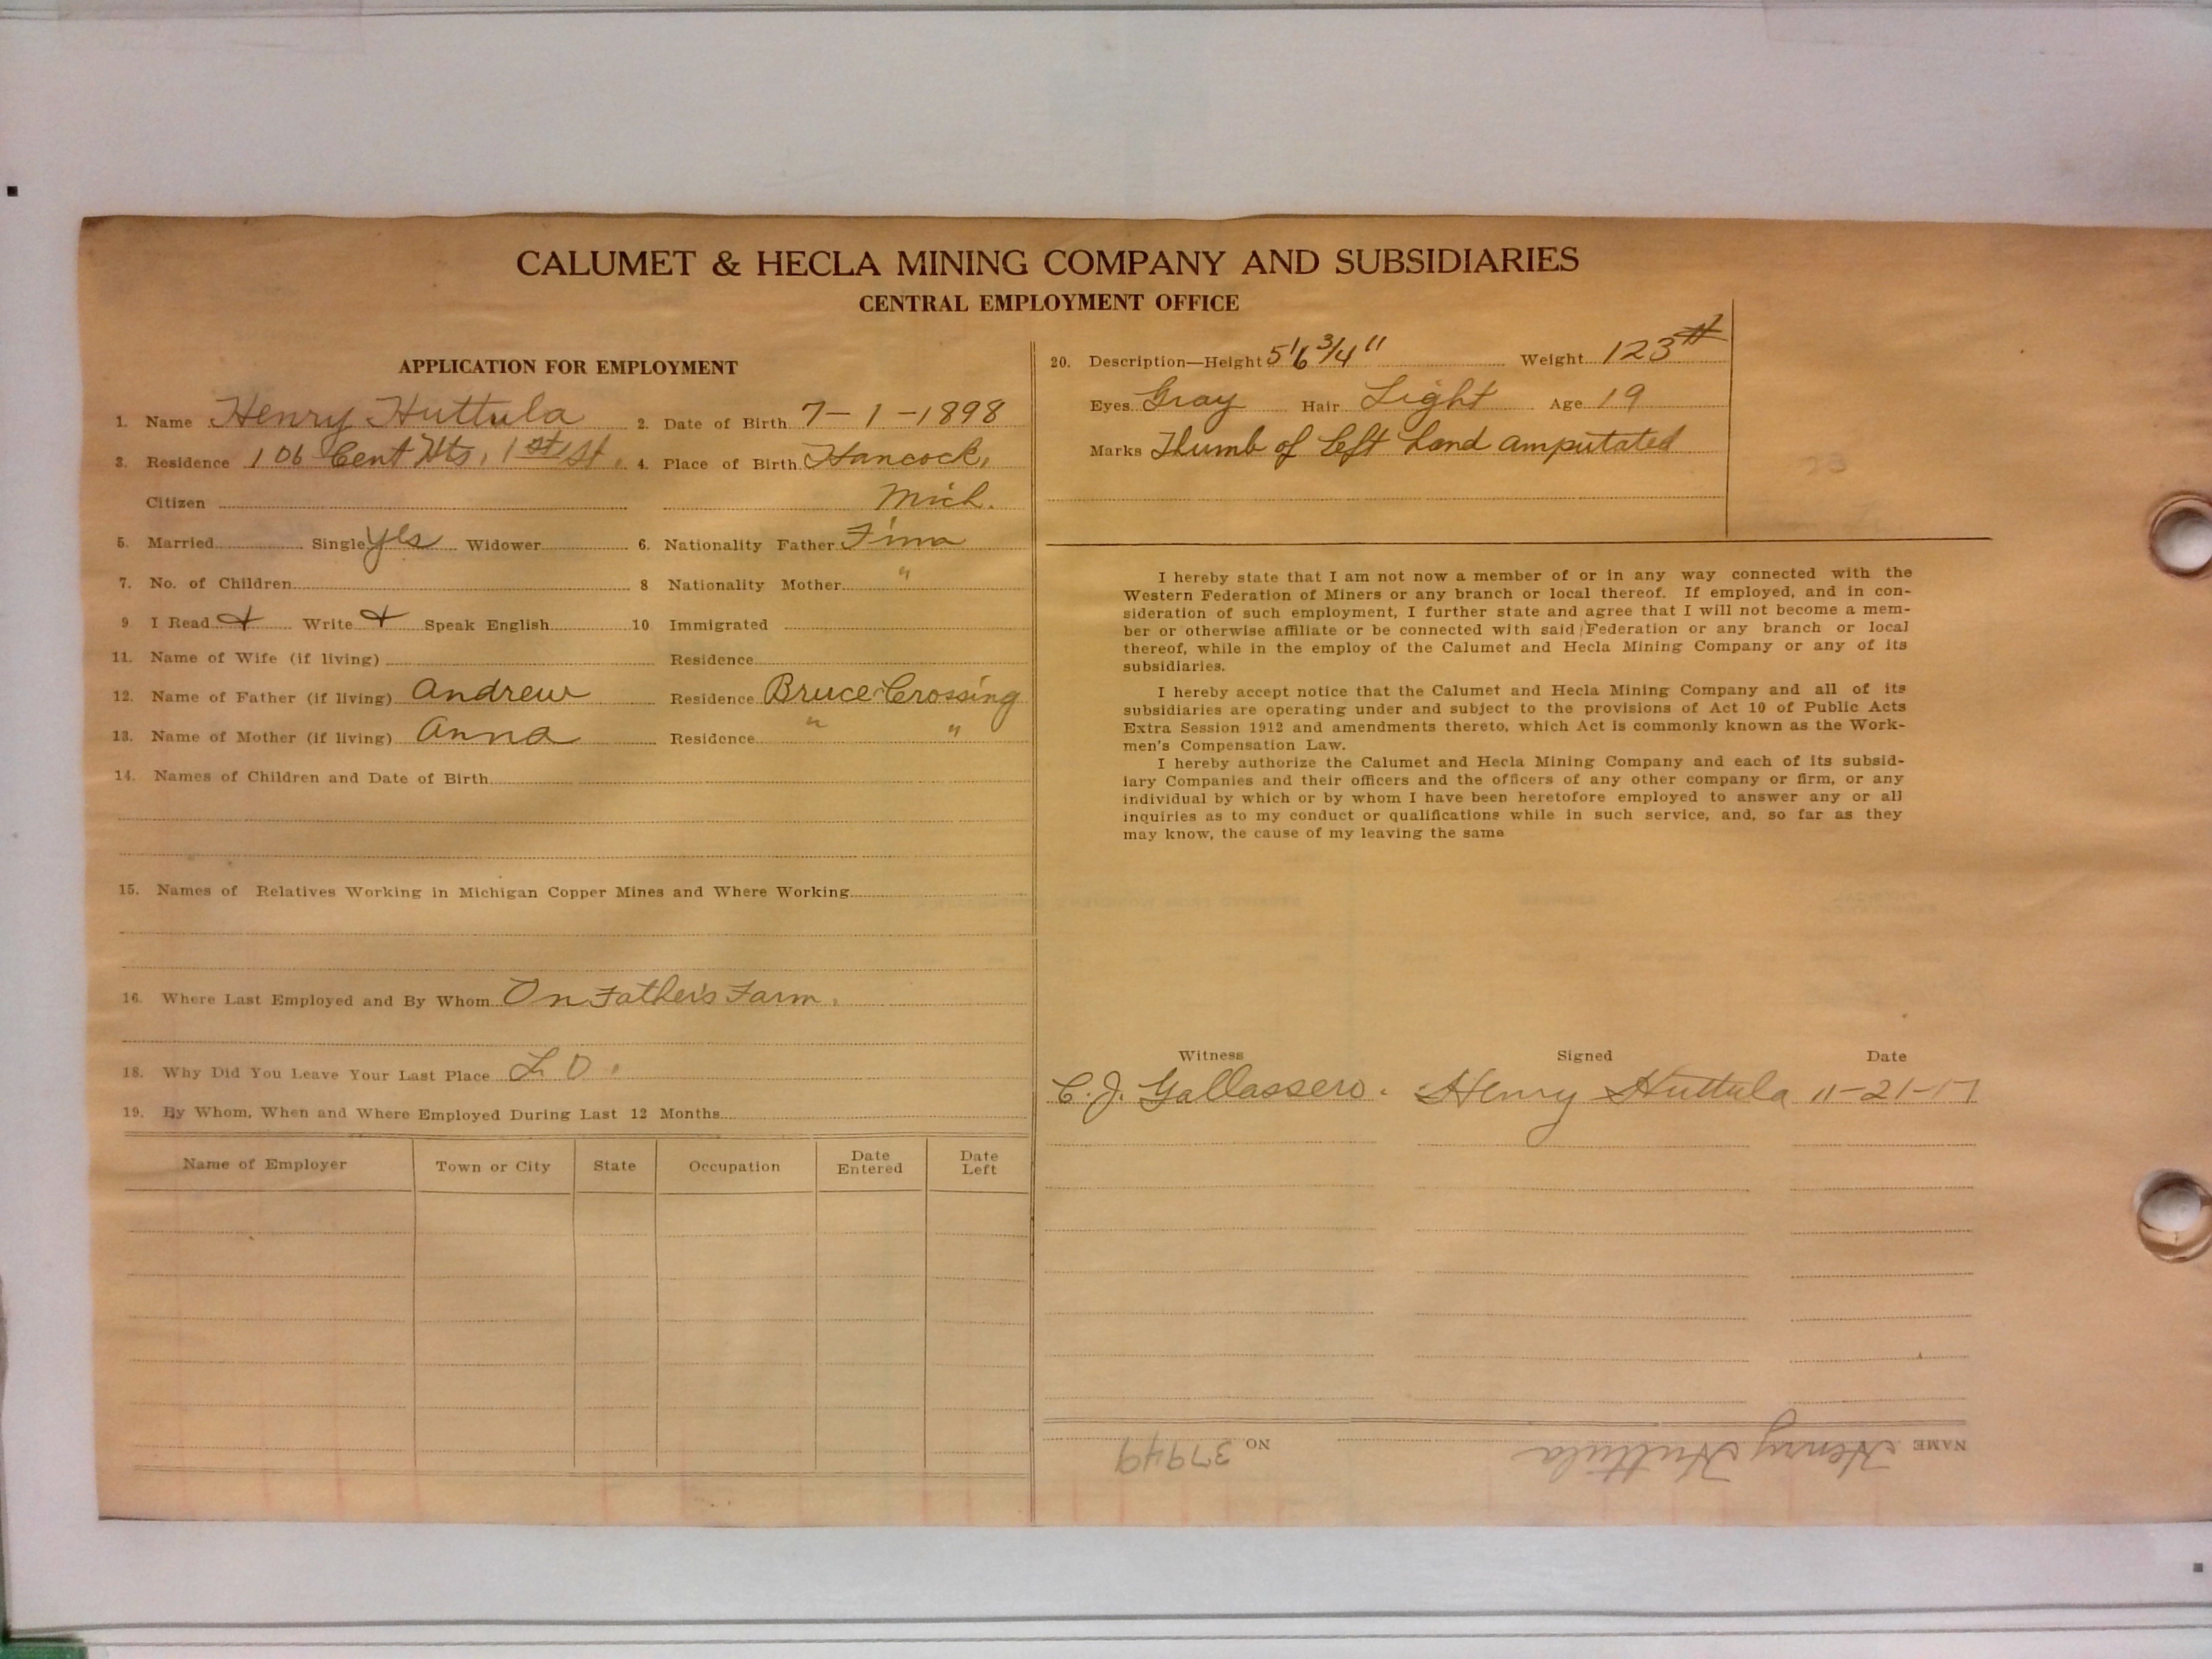 CALUMET & HECLA MINING COMPANY AND SUBSIDIARIES
CENTRAL EMPLOYMENT OFFICE
APPLICATION FOR EMPLOYMENT
1. Name Henry Huttula 2. Date of Birth 7-1-1898
3. Residence 106 Cent Hts, 1st St. 4. Place of Birth Hancock,
Citizen Mich.
5. Married Single yes Widower 6. Nationality Father Finn
7. No. of Children 8 Nationality Mother "
9 I Read + Write + Speak English 10. Immigrated
11. Name of Wife (if living) Residence
12. Name of Father (if living) Andrew Residence Bruce Crossing
13. Name of Mother (if living) Anna Residence " "
14. Names of Children and Date of Birth
15. Names of Relatives Working in Michigan Copper Mines and Where Working
16. Where Last Employed and By Whom On Father's Farm.
18. Why Did You Leave Your Last Place L. O.
19. By Whom, When and Where Employed During Last 12 Months
Name of Employer Town or City State Occupation Date Entered Date Left
20. Description—Height 5'6 3/4" Weight 123#
Eyes Gray Hair Light Age 19
Marks Thumb of left hand amputated
I hereby state that I am not now a member of or in any way connected with the
Western Federation of Miners or any branch or local thereof. If employed, and in con-
sideration of such employment, I further state and agree that I will not become a mem-
ber or otherwise affiliate or be connected with said Federation or any branch or local
thereof, while in the employ of the Calumet and Hecla Mining Company or any of its
subsidiaries.
I hereby accept notice that the Calumet and Hecla Mining Company and all of its
subsidiaries are operating under and subject to the provisions of Act 10 of Public Acts
Extra Session 1912 and amendments thereto, which Act is commonly known as the Work-
men's Compensation Law.
I hereby authorize the Calumet and Hecla Mining Company and each of its subsid-
iary Companies and their officers and the officers of any other company or firm, or any
individual by which or by whom I have been heretofore employed to answer any or all
inquiries as to my conduct or qualifications while in such service, and, so far as they
may know, the cause of my leaving the same
Witness Signed Date
C. J. Gallassero. Henry Huttula 11-21-17
NAME Henry Huttula NO 37949